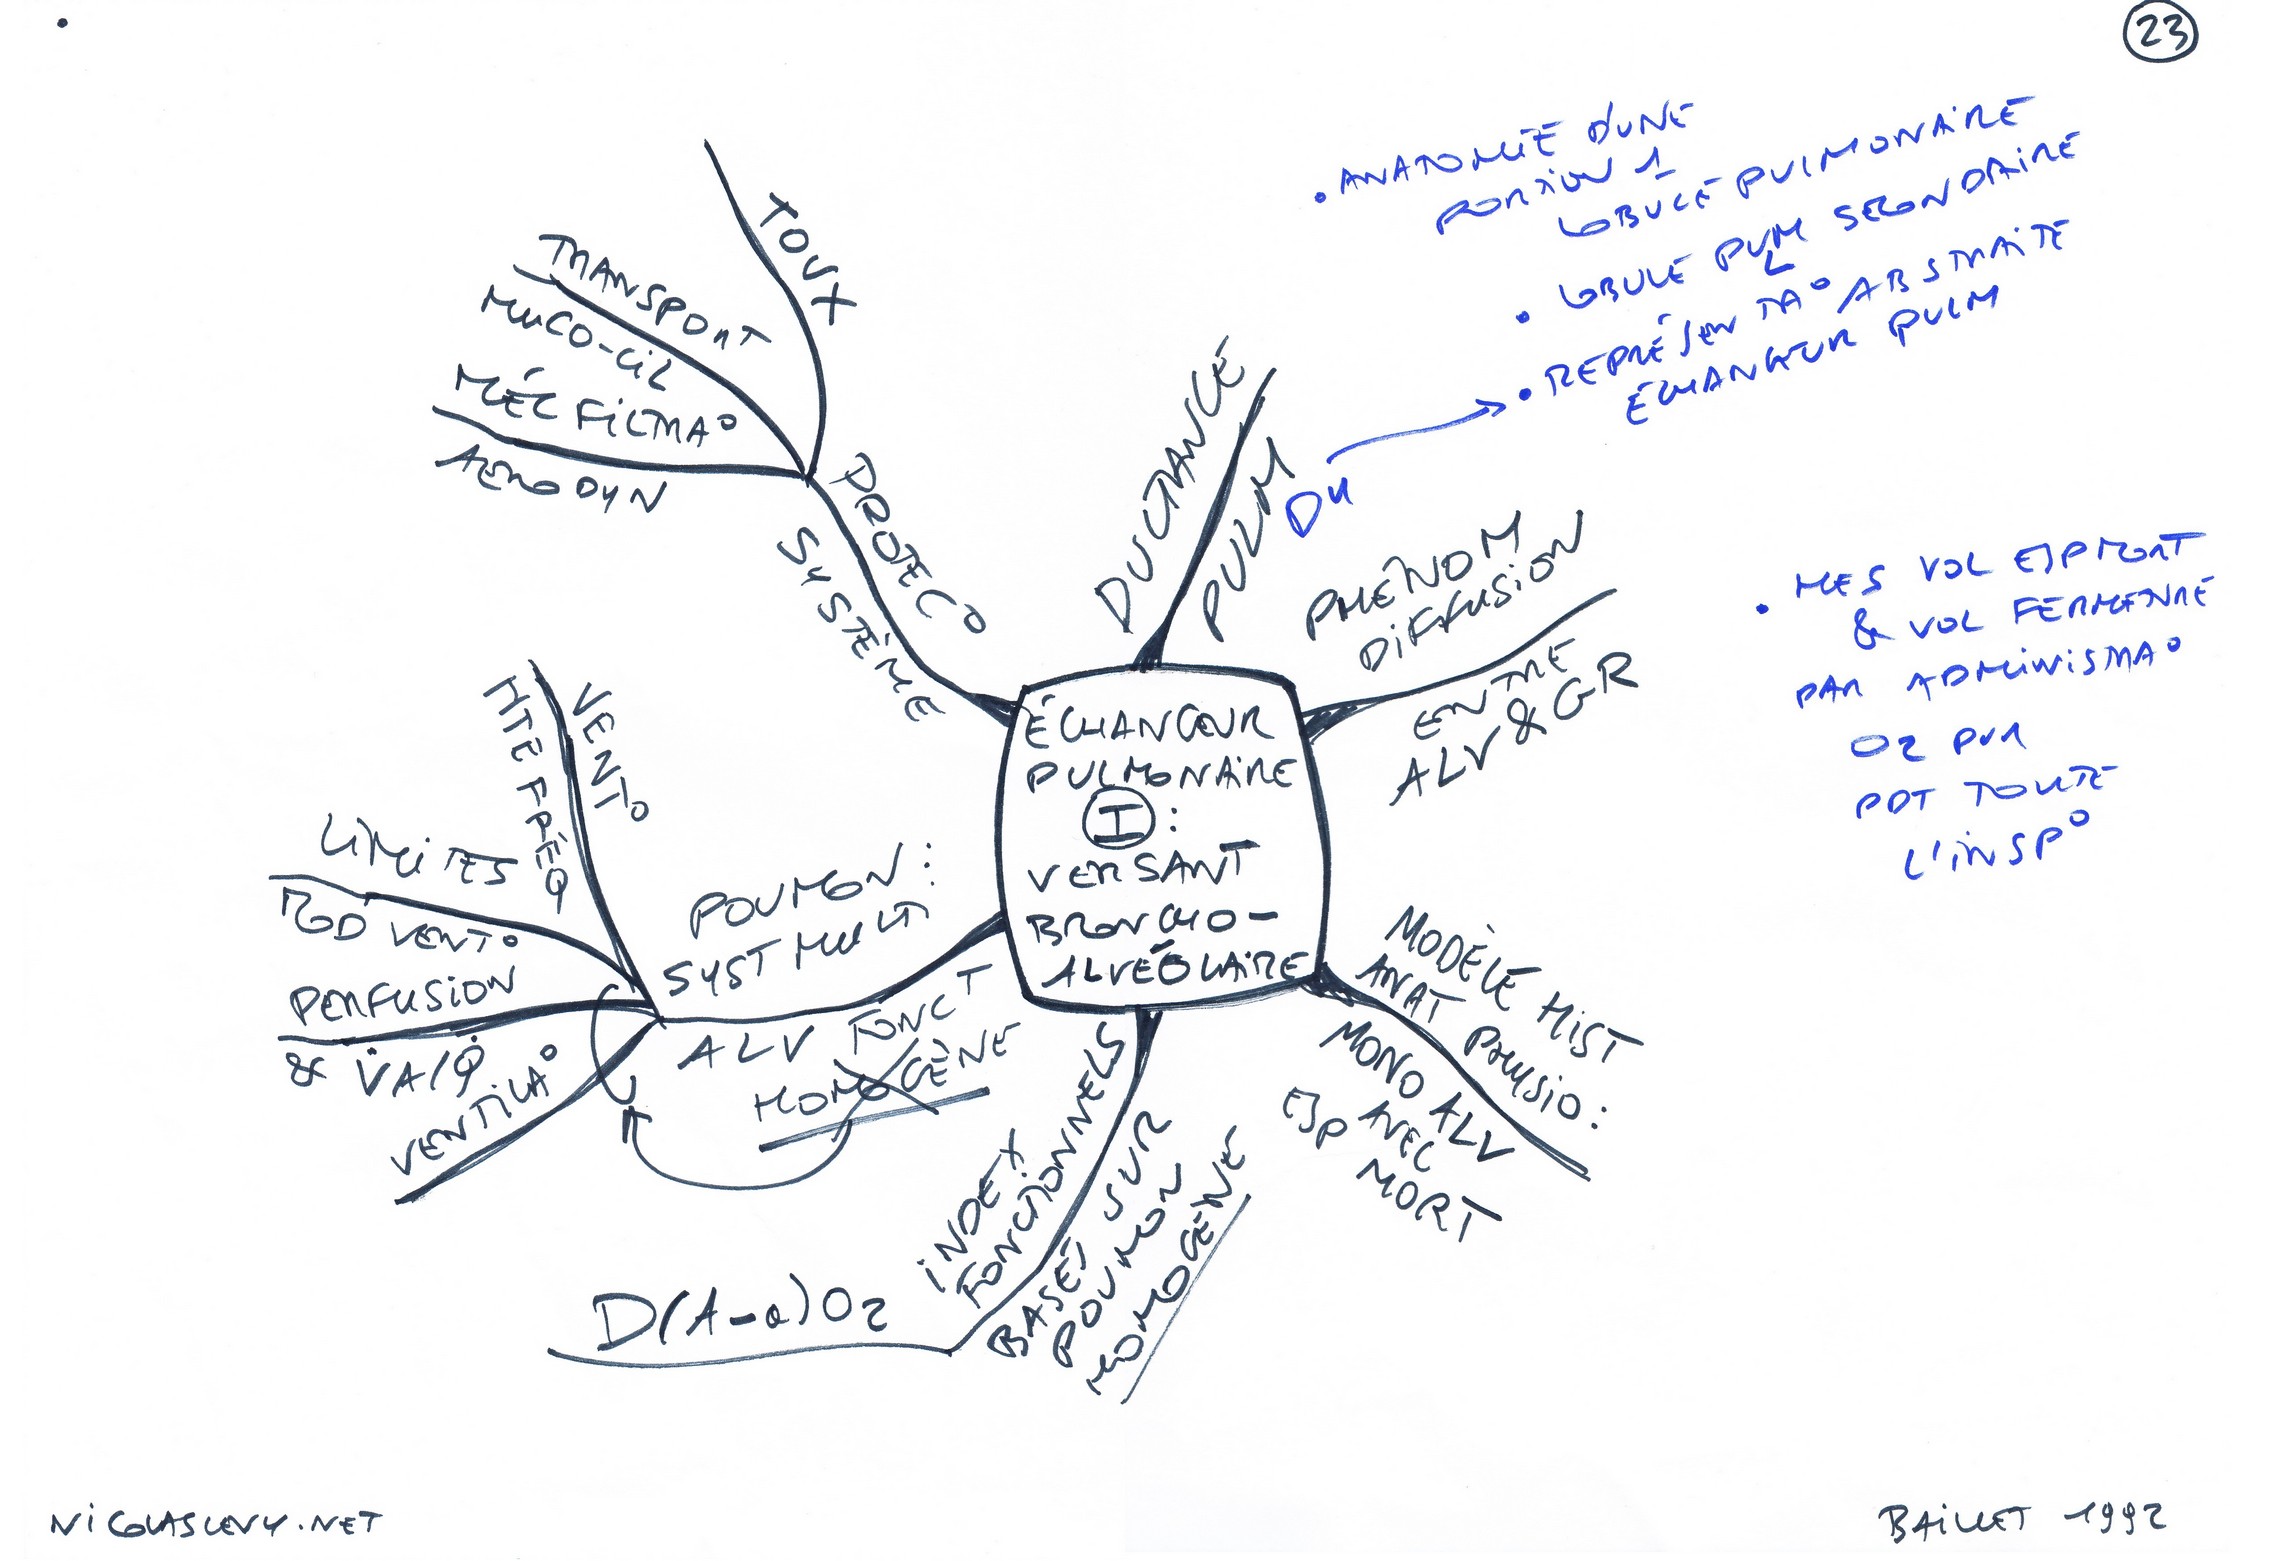 23
ANATOMIE D'UNE
PORTION 1
LOBULE PULMONAIRE
LOBULE PULM SECONDAIRE
REPRÉSENTA° ABSTRAITE
ÉCHANGEUR PULM
DU
MES VOL ESP MORT
& VOL FERMETURE
PAR ADMINISTRA°
O2 PUR
PDT TOUTE
L'INSP°
TOUX
TRANSPORT
MUCO-CIL
MÉC FILTRA°
AERODYN
PROTEC°
SYSTÈME
DUCTANCE
PULM
PHÉNOM
DIFFUSION
ENTRE
ALV & GR
ÉCHANGEUR
PULMONAIRE
I :
VERSANT
BRONCHO-
ALVÉOLAIRE
VENT°
HTE FRÉQ
LIMITES
MOD VENT°
PERFUSION
& V̇A/Q̇
VENTILA°
POUMON :
SYST MULTI
ALV FONCT
HOMOGÈNE
MODÈLE HIST
ANAT PHYSIO :
MONO ALV
AVEC
ESP MORT
INDEX
FONCTIONNELS
BASÉS SUR
POUMON
HOMOGÈNE
D(A-a)O2
NICOLASLEVY.NET
BAILLET 1992